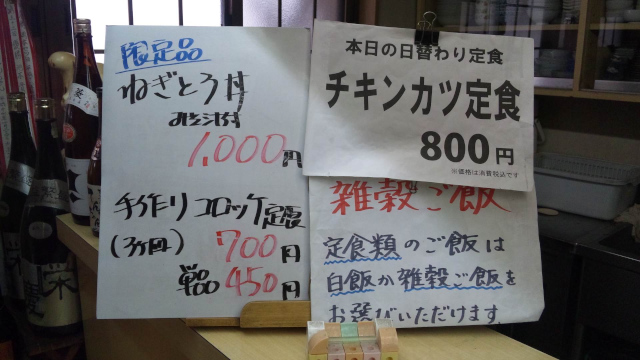 限定品
ねぎとろ丼
みそ汁付
1,000円
手作りコロッケ定食
(3ヶ回) 700円
単品 450円
本日の日替わり定食
チキンカツ定食
800円
※価格は消費税込です
雑穀ご飯
定食類のご飯は
白飯か雑穀ご飯を
お選びいただけます